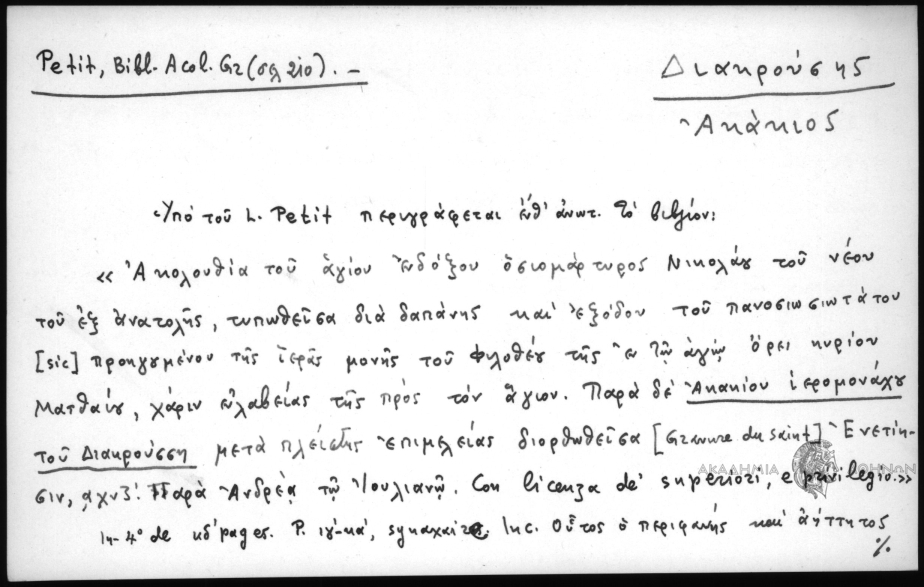 Petit, Bibl. Acol. Gr (σελ 210). –
Διακρούσης
Ἀκάκιος
Ὑπὸ τοῦ L. Petit περιγράφεται ἔνθ' ἀνωτ. τὸ βιβλίον:
« Ἀκολουθία τοῦ ἁγίου ἐνδόξου ὁσιομάρτυρος Νικολάου τοῦ νέου
τοῦ ἐξ ἀνατολῆς, τυπωθεῖσα διὰ δαπάνης καὶ ἐξόδου τοῦ πανοσιωσιωτάτου
[sic] προηγουμένου τῆς ἱερᾶς μονῆς τοῦ Φιλοθέου τῆς ἐν τῷ ἁγίῳ ὄρει κυρίου
Ματθαίου, χάριν εὐλαβείας τῆς πρὸς τὸν ἅγιον. Παρὰ δὲ Ἀκακίου ἱερομονάχου
τοῦ Διακρούση μετὰ πλείστης ἐπιμελείας διορθωθεῖσα [Gravure du Saint] Ἐνετίη-
σιν, αχνζ'. Παρὰ Ἀνδρέᾳ τῷ Ἰουλιανῷ. Con licenza de' superiori, e privilegio.»
ΑΚΑΔΗΜΙΑ ΑΘΗΝΩΝ
In-4° de κδ' pages. P. ιγ'-κά, synaxaire. Inc. Οὗτος ὁ περιφανὴς καὶ ἀήττητος
%